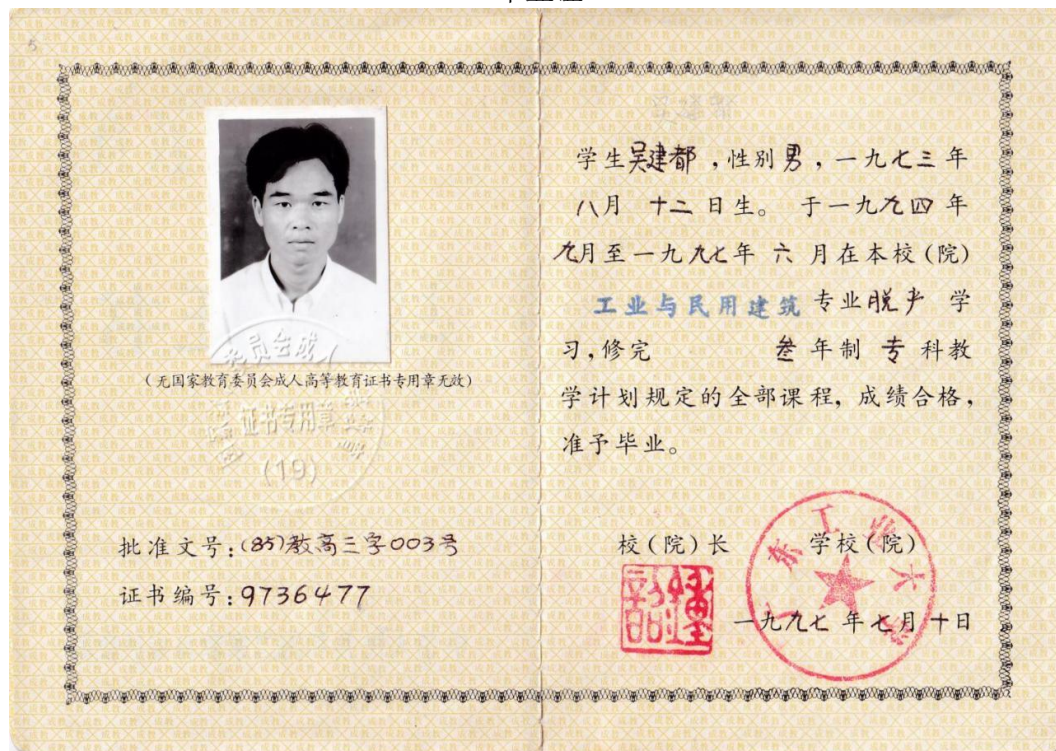 5
(无国家教育委员会成人高等教育证书专用章无效)
证书专用章
(19)
批准文号:(85)教高三字003号
证书编号:9736477
学生吴建都,性别男,一九七三年
八月 十二 日生。 于一九九四 年
九月至一九九七年 六 月在本校(院)
工业与民用建筑 专业脱产 学
习,修完 叁 年制 专 科教
学计划规定的全部课程, 成绩合格,
准予毕业。
校(院)长 学校(院)
广东工业大学
一九九七 年七月十日